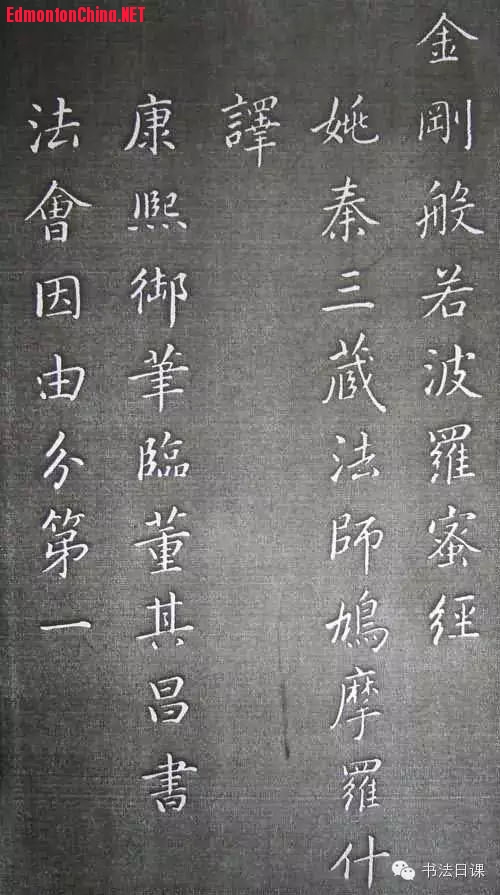 EdmontonChina.NET
金剛般若波羅蜜經
姚秦三藏法師鳩摩羅什
譯
康熙御筆臨董其昌書
法會因由分第一
书法日课